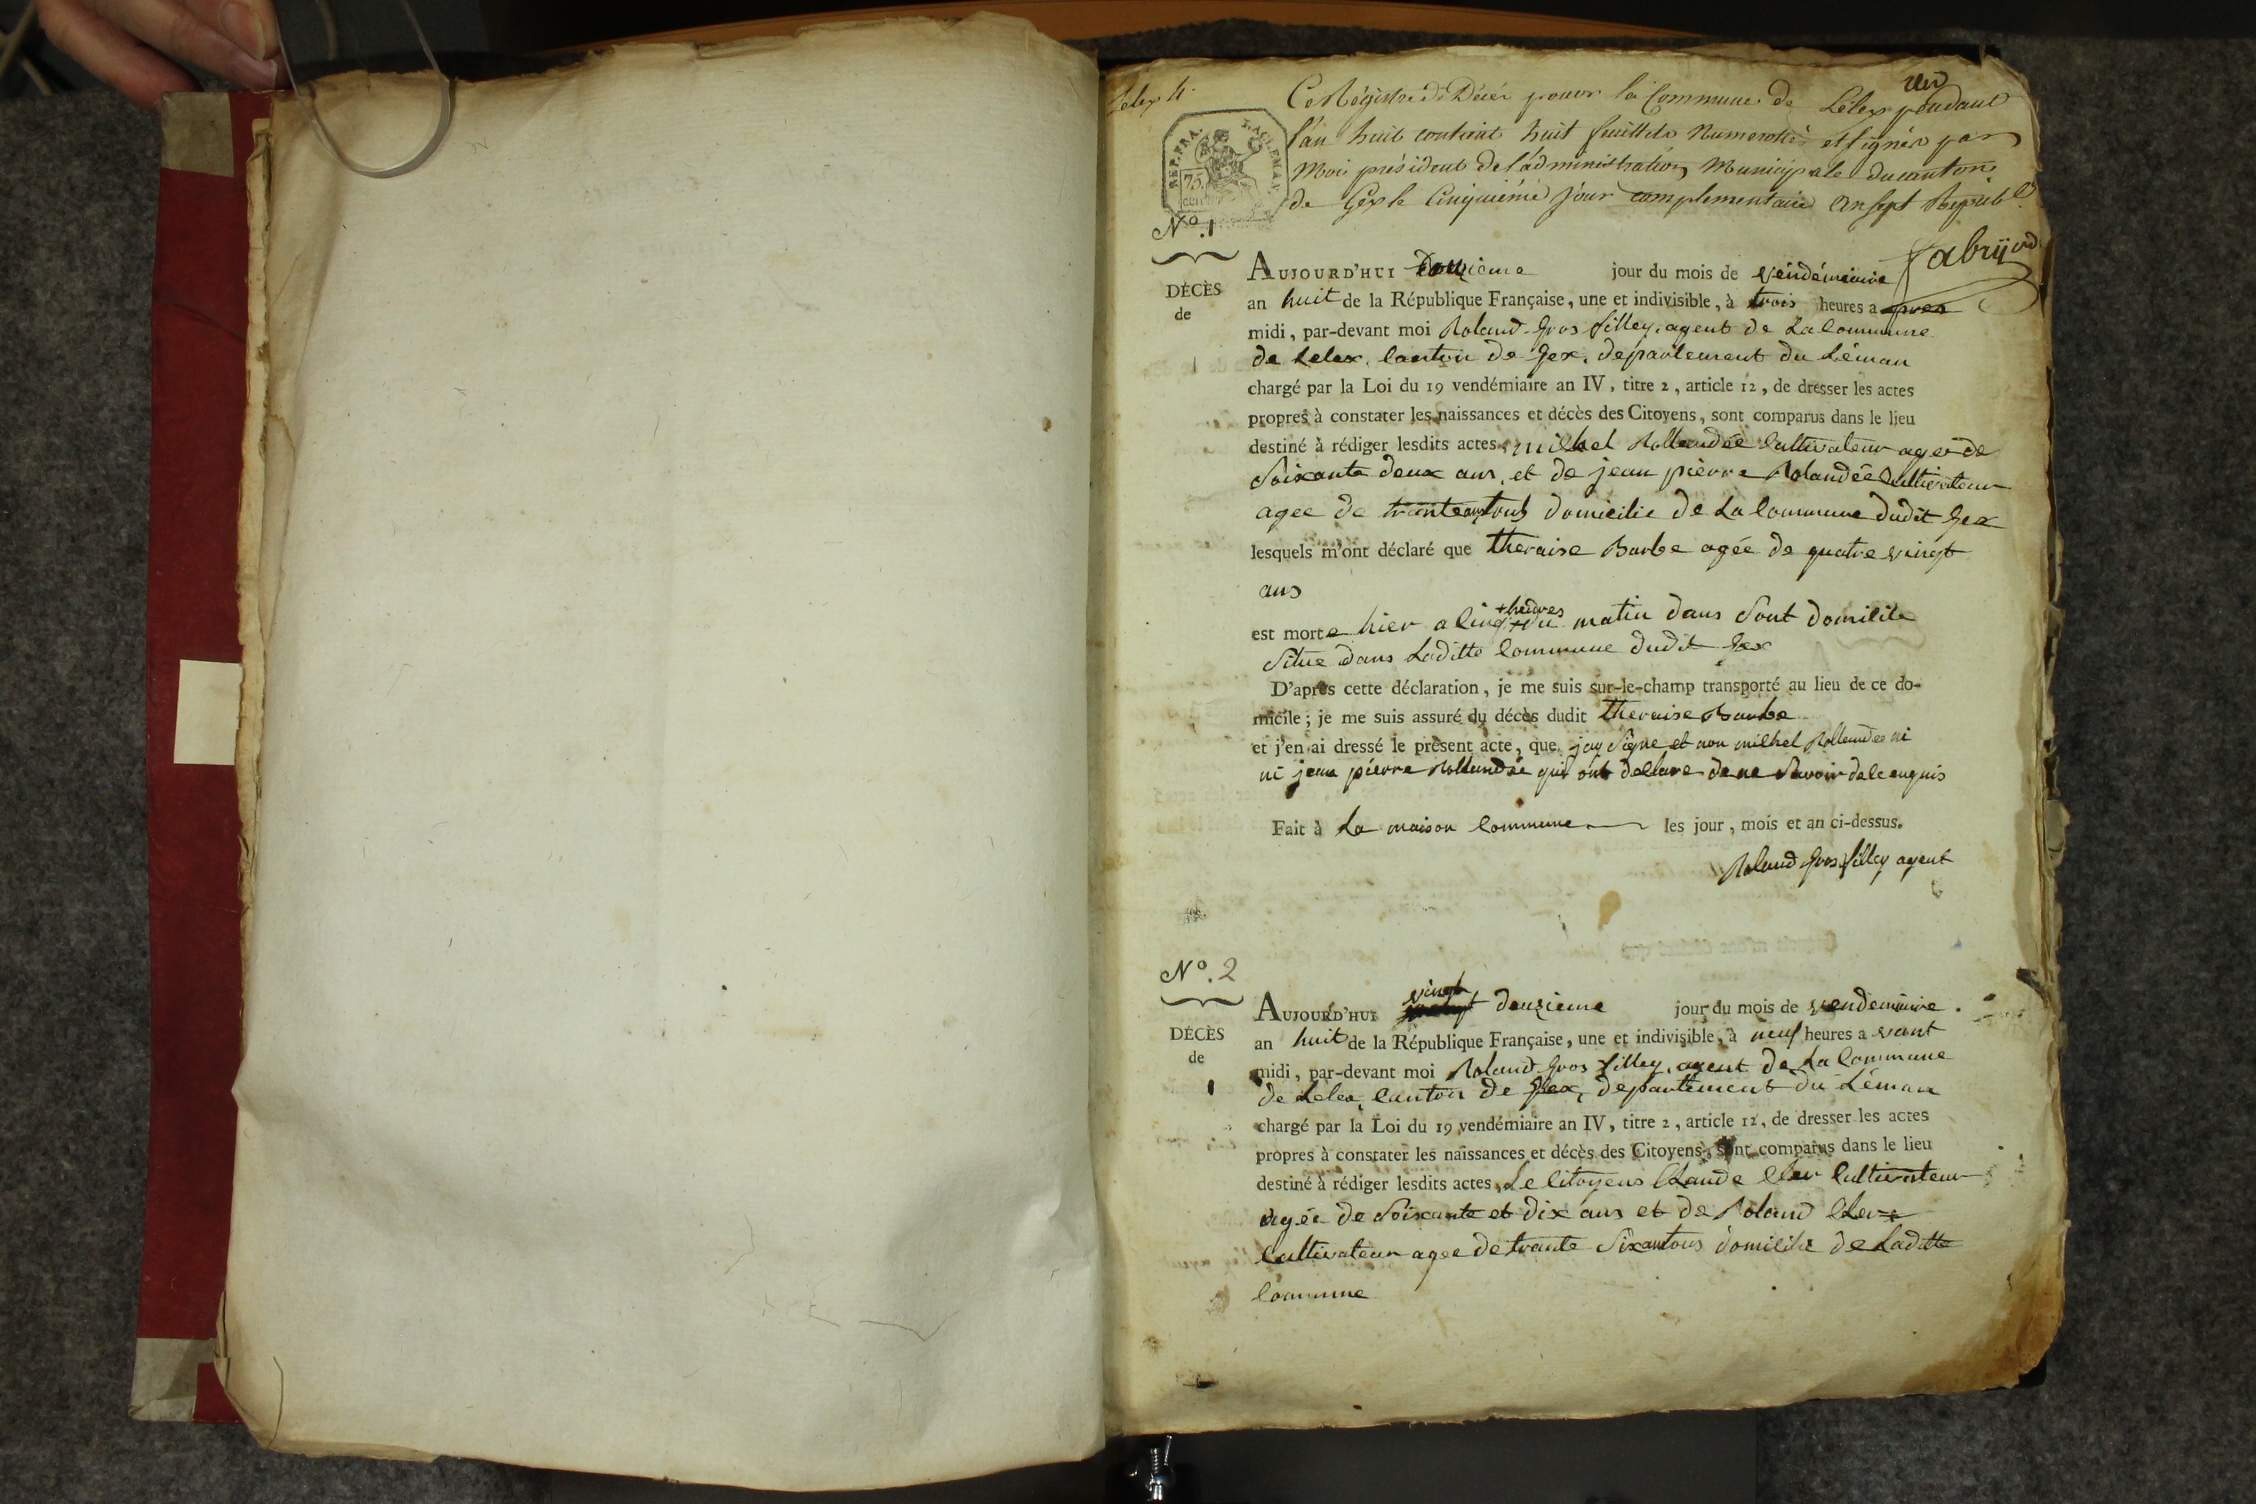 un
Lelex 4.
Ce Régistre de Décés pour la Commune de Lélex pendant
l'an huit contient huit feuillets Numerotés et signés par
Moi président de l'administration Municipale du canton
de Gex le Cinquiéme jour complementaire an sept Republ.
REP. FRA.
75.
CEN
Nº. 1
DÉCÈS
de
AUJOURD'HUI Douzieme jour du mois de véndémiaire
an huit de la République Française, une et indivisible, à trois heures a pres
midi, par-devant moi Roland Gros filley, agent de La Commune
de Lelex, Canton de Gex, département du Léman
chargé par la Loi du 19 vendémiaire an IV, titre 2, article 12, de dresser les actes
propres à constater les naissances et décès des Citoyens, sont comparus dans le lieu
destiné à rédiger lesdits actes, michel Rollandée Cultivateur agee de
Soixante deux ans, et de jean pièrre Rolandée Cultivateur
agee de trante ans tous domicilie de La Commune dudit Gex
lesquels m'ont déclaré que theraise Barbe agée de quatre vingt
ans
est morte hier a Cinq + heures + du matin dans Sont domicile
Situe dans Laditte Commune dudit Gex
D'après cette déclaration, je me suis sur-le-champ transporté au lieu de ce do-
micile; je me suis assuré du décès dudit theraise Barbe
et j'en ai dressé le présent acte, que jay Signe et non michel Rollandée ni
ni jean pièrre Rollandée qui ont declare de ne Savoir de le enquis
Fait à La maison Commune les jour, mois et an ci-dessus.
Roland Gros filley agent
Nº. 2
DÉCÈS
de
AUJOURD'HUI vingt deuzieme jour du mois de vendemiaire.
an huit de la République Française, une et indivisible, à neuf heures a vant
midi, par-devant moi Roland Gros filley, agent de La Commune
de Lelex, Canton de Gex, departement du Léman
chargé par la Loi du 19 vendémiaire an IV, titre 2, article 12, de dresser les actes
propres à constater les naissances et décès des Citoyens, sont comparus dans le lieu
destiné à rédiger lesdits actes, Le Citoyens Claude Cultivateur
agée de Soixante et dix ans et de Roland
Cultivateur agee de trante Six ans tous domicilie de Laditte
Commune